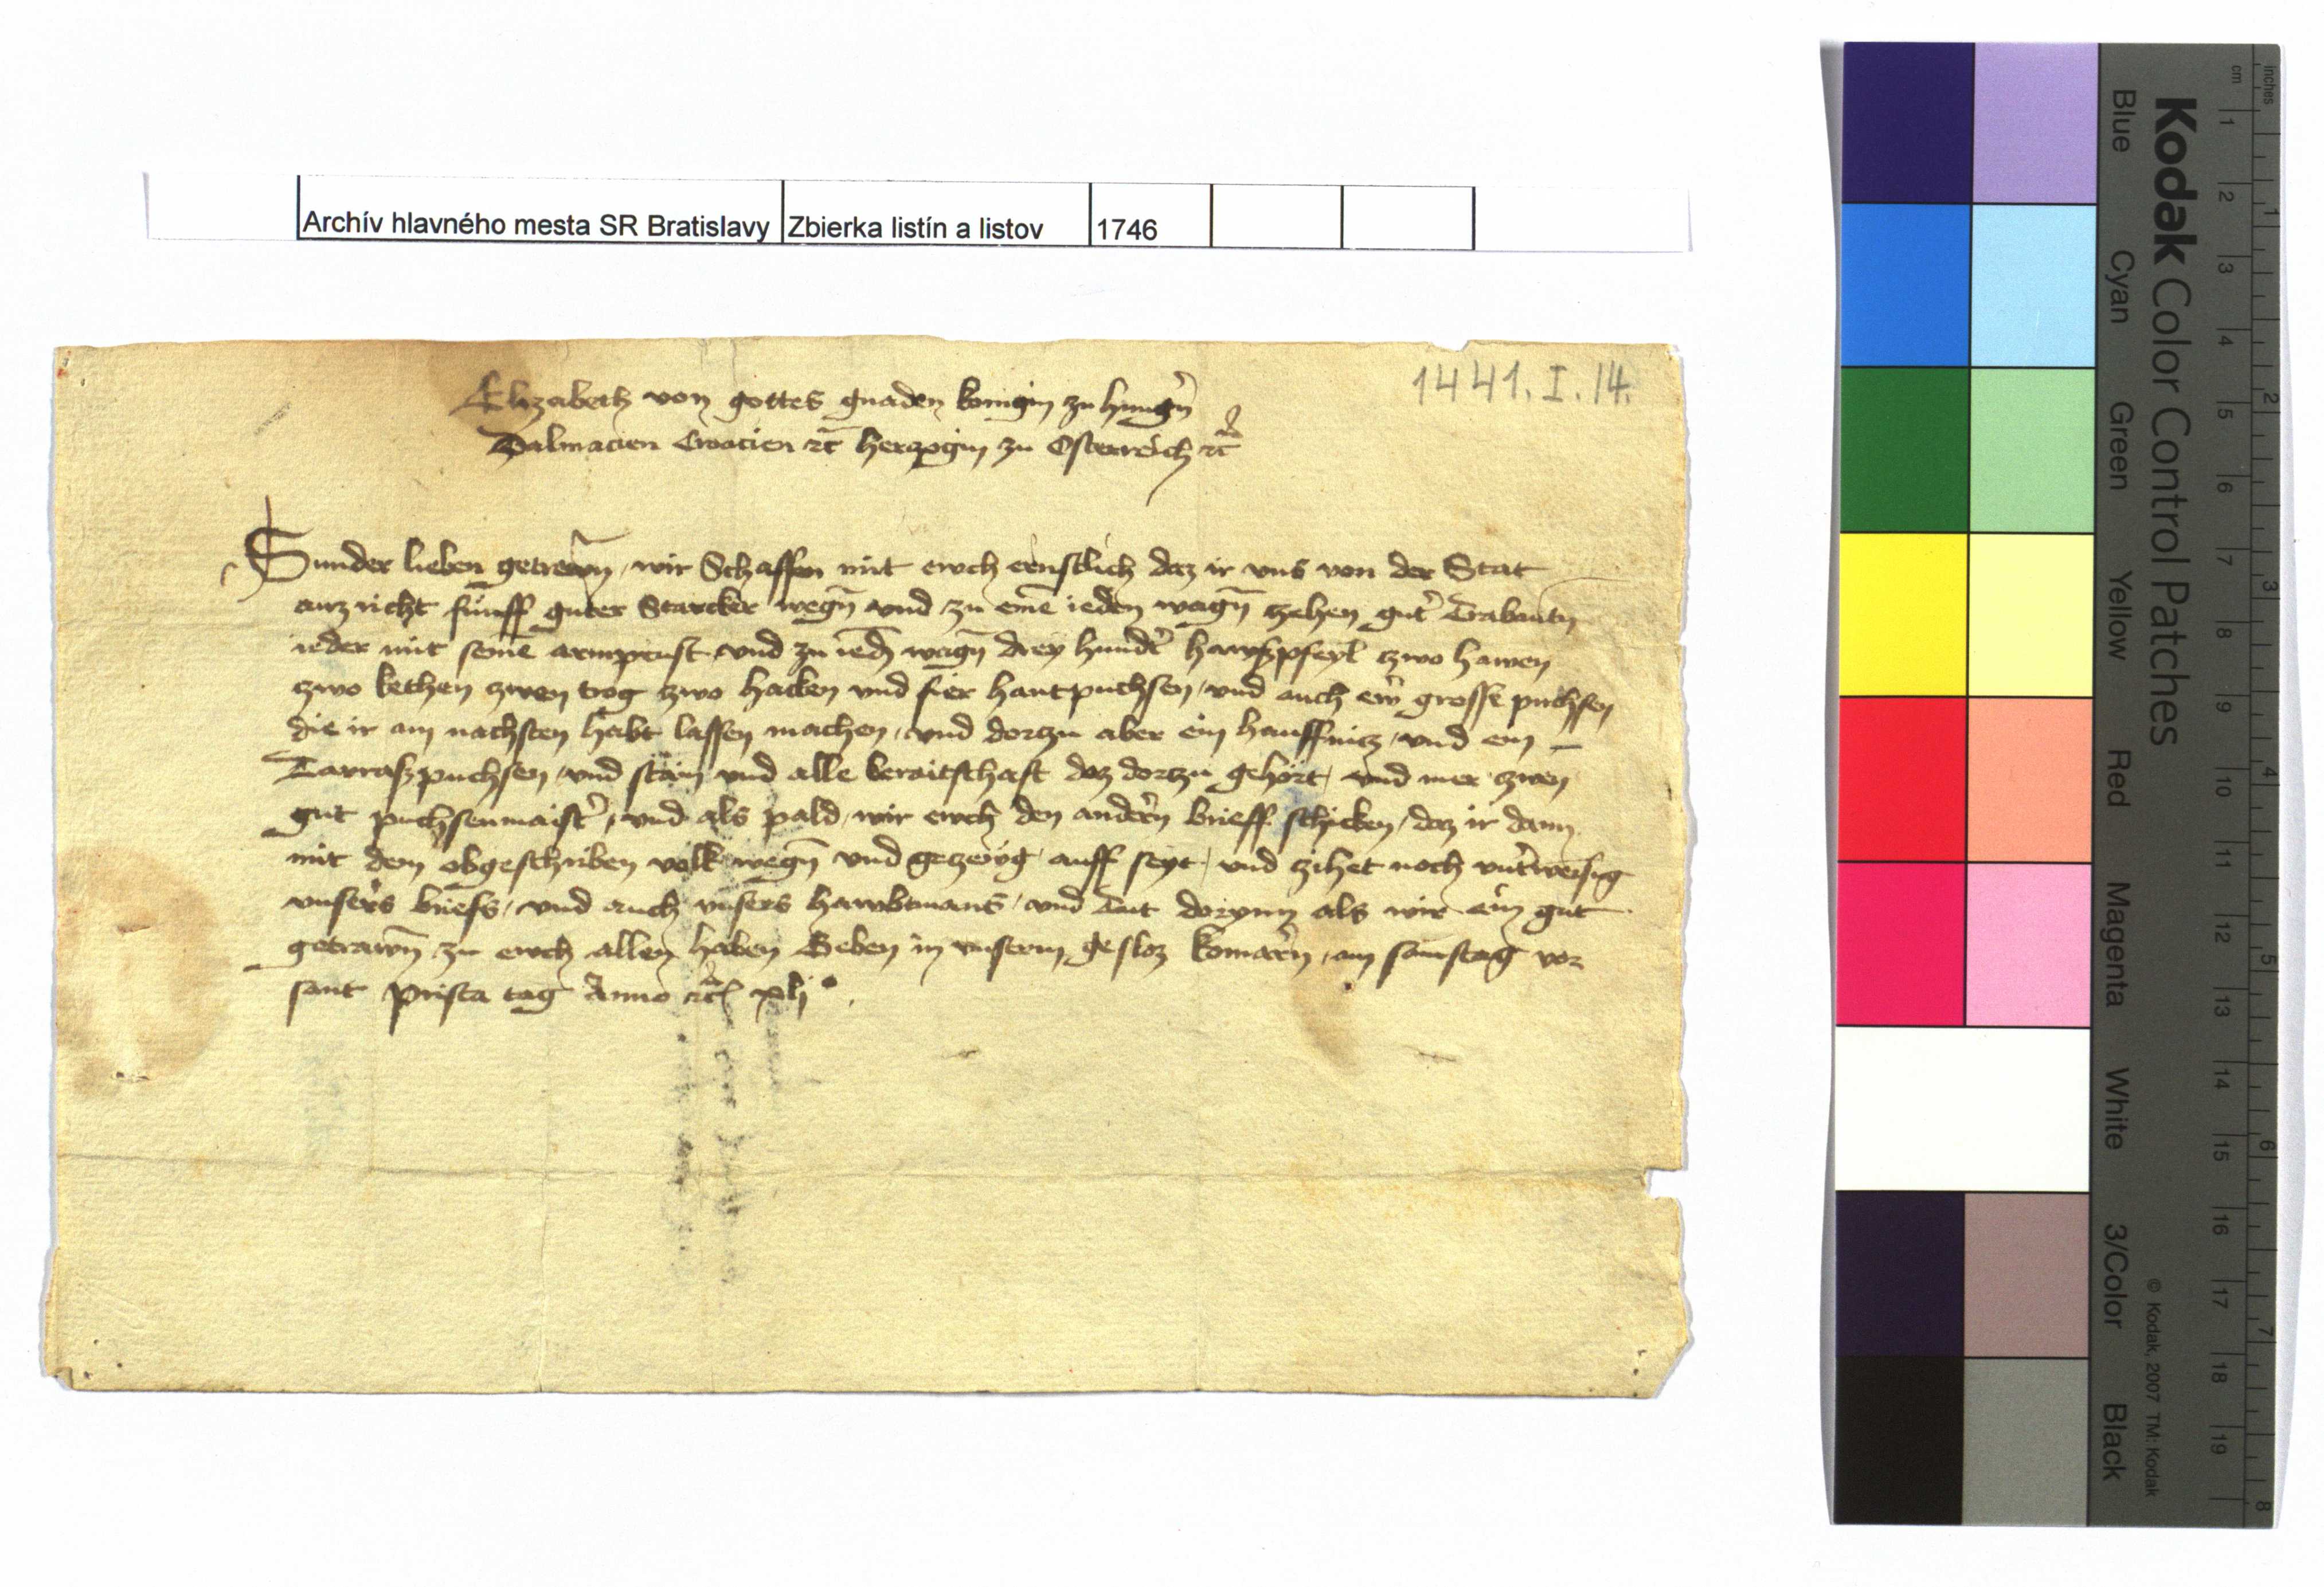 Archív hlavného mesta SR Bratislavy Zbierka listín a listov 1746
1441. I. 14.
Elizabeth von gottes gnaden konigin zu hungern̄
Dalmacien Croacien ꝛc̄ herczogin zu Osterreich ꝛc̄
Sunder lieben getrewn̄, wir Schaffen mit ewch ernstlich daz ir vns von der Stat
auzricht fünff guter Starcker wegn̄ vnd zu eine̅ ieden wagn̄ czehen gut' Trabantn̄
ieder mit seine̅ armprust vnd zu ied̄ wagn̄ drey hundt' hawspfeyl czwo hawen
czwo kethen zwen trog czwo hacken vnd fier hantpuchsen, vnd auch ew' grosse puchsen
die ir am nachsten habt lassen machen, vnd dorczu aber ein hauffnicz, vnd ein
Tarraspuchsen, vnd stain vnd alle beraitschaft daz dorczu gehört, vnd mer czwen
gut puchsenmaist', vnd als pald, wir ewch den andern brieff schicken, daz ir dann
mit dem obgeschriben volk wegn̄ vnd geczewg auff seyt, vnd zihet noch vnt'weisūg
vnsers briefs, vnd auch vnsers hawbtmans, vnd Tut dorynn als wir ein gut
getrawn̄ zu ewch allen haben Geben in vnserm gesloz Komarn̄, am samstag vor
sant Prisca tag Anno ꝛc̄ xlj°.
Kodak Color Control Patches
Blue Cyan Green Yellow Red Magenta White 3/Color Black
© Kodak, 2007 TM: Kodak
cm 1 2 3 4 5 6 7 8 9 10 11 12 13 14 15 16 17 18 19
inches 1 2 3 4 5 6 7 8